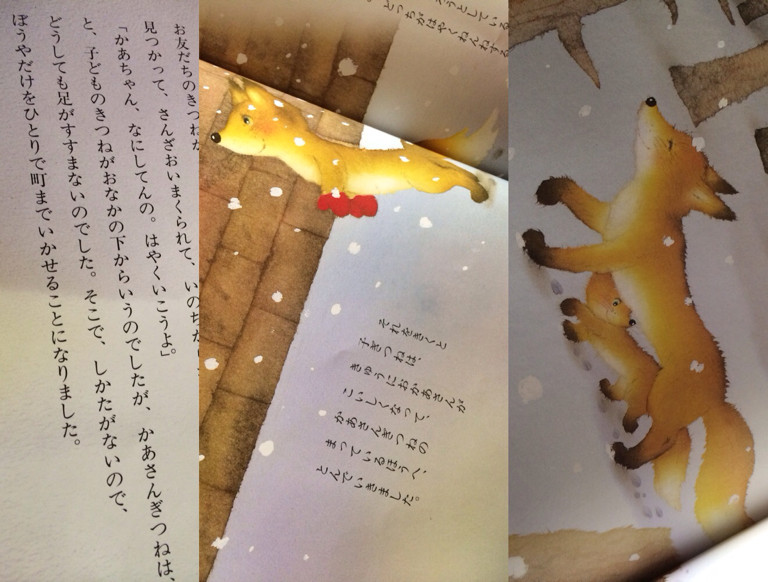 お友だちのきつね
見つかって、さんざおいまくられて、いのち
「かあちゃん、なにしてんの。はやくいこうよ」
と、子どものきつねがおなかの下からいうのでしたが、かあさんぎつねは、
どうしても足がすすまないのでした。そこで、しかたがないので、
ぼうやだけをひとりで町までいかせることになりました。
うとしている
どっちがはやくねんねする
それをきくと
子ぎつねは、
きゅうにおかあさんが
こいしくなって、
かあさんぎつねの
まっているほうへ、
とんでいきました。